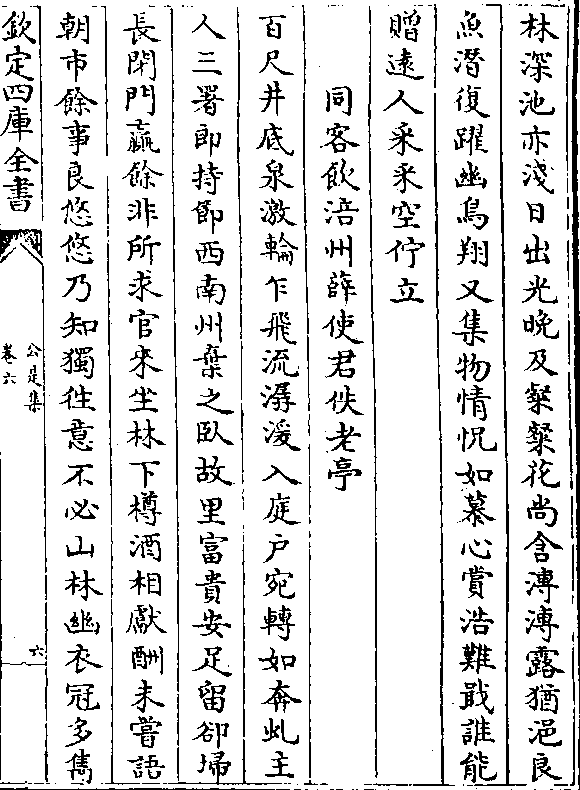 林深池亦淺日出光晚及粲粲花尚含漙漙露猶浥良
魚潛復躍幽鳥翔又集物情怳如慕心賞浩難戢誰能
贈遠人采采空佇立
同客飲涪州薛使君佚老亭
百尺井底泉激輪乍飛流潺湲入庭户宛轉如奔虬主
人三署郎持節西南州棄之臥故里富貴安足留卻埽
長閑門贏餘非所求官來坐林下樽酒相獻酬未嘗語
朝市餘事良悠悠乃知獨往意不必山林幽衣冠多雋
欽定四庫全書
公是集
卷六
六